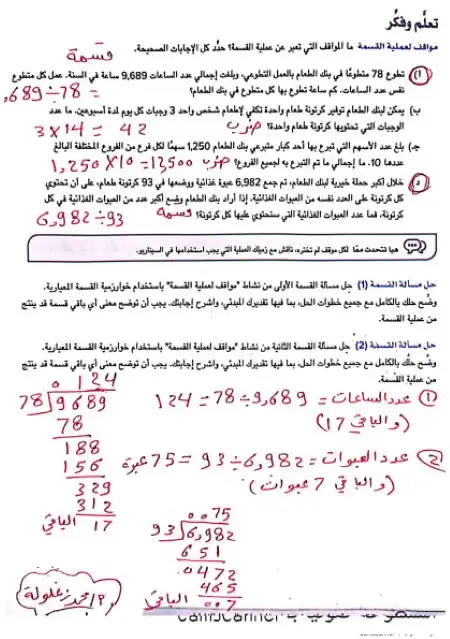 تعلَّم وفكِّر
مواقف لعملية القسمة ما المواقف التي تعبر عن عملية القسمة؟ حدِّد كل الإجابات الصحيحة.
قسمة
أ) تطوع 78 متطوعًا في بنك الطعام بالعمل التطوعي، وبلغت إجمالي عدد الساعات 9,689 ساعة في السنة. عمل كل متطوع
نفس عدد الساعات. كم ساعة تطوع بها كل متطوع في بنك الطعام؟ = 78 ÷ 9,689
ب) يمكن لبنك الطعام توفير كرتونة طعام واحدة تكفي لإطعام شخص واحد 3 وجبات كل يوم لمدة أسبوعين. ما عدد
الوجبات التي تحتويها كرتونة طعام واحدة؟ ضرب 3 × 14 = 42
جـ) بلغ عدد الأسهم التي تبرع بها أحد كبار متبرعي بنك الطعام 1,250 سهمًا لكل فرع من الفروع المختلفة البالغ
عددها 10. ما إجمالي ما تم التبرع به لجميع الفروع؟ ضرب 1,250 × 10 = 12,500
د) خلال أكبر حملة خيرية لبنك الطعام، تم جمع 6,982 عبوة غذائية ووضعها في 93 كرتونة طعام، على أن تحتوي
كل كرتونة على العدد نفسه من العبوات الغذائية. إذا أراد بنك الطعام وضع أكبر عدد من العبوات الغذائية في كل
كرتونة، فما عدد العبوات الغذائية التي ستحتوي عليها كل كرتونة؟ قسمة 6,982 ÷ 93
هيا نتحدث معًا لكل موقف لم تختره، ناقش مع زميلك العملية التي يجب استخدامها في السيناريو.
حل مسألة القسمة (1) حل مسألة القسمة الأولى من نشاط "مواقف لعملية القسمة" باستخدام خوارزمية القسمة المعيارية.
وضِّح حلك بالكامل مع جميع خطوات الحل، بما فيها تقديرك المبدئي، واشرح إجابتك. يجب أن توضح معنى أي باقي قسمة قد ينتج
من عملية القسمة.
حل مسألة القسمة (2) حل مسألة القسمة الثانية من نشاط "مواقف لعملية القسمة" باستخدام خوارزمية القسمة المعيارية.
وضِّح حلك بالكامل مع جميع خطوات الحل، بما فيها تقديرك المبدئي، واشرح إجابتك. يجب أن توضح معنى أي باقي قسمة قد ينتج
من عملية القسمة.
0124
78 9689
78
188
156
329
312
الباقي 17
① عدد الساعات = 9,689 ÷ 78 = 124
(والباقي 17)
② عدد العبوات = 6,982 ÷ 93 = 75 عبوة
(والباقي 7 عبوات)
0075
93 6,982
651
0472
465
الباقي 007